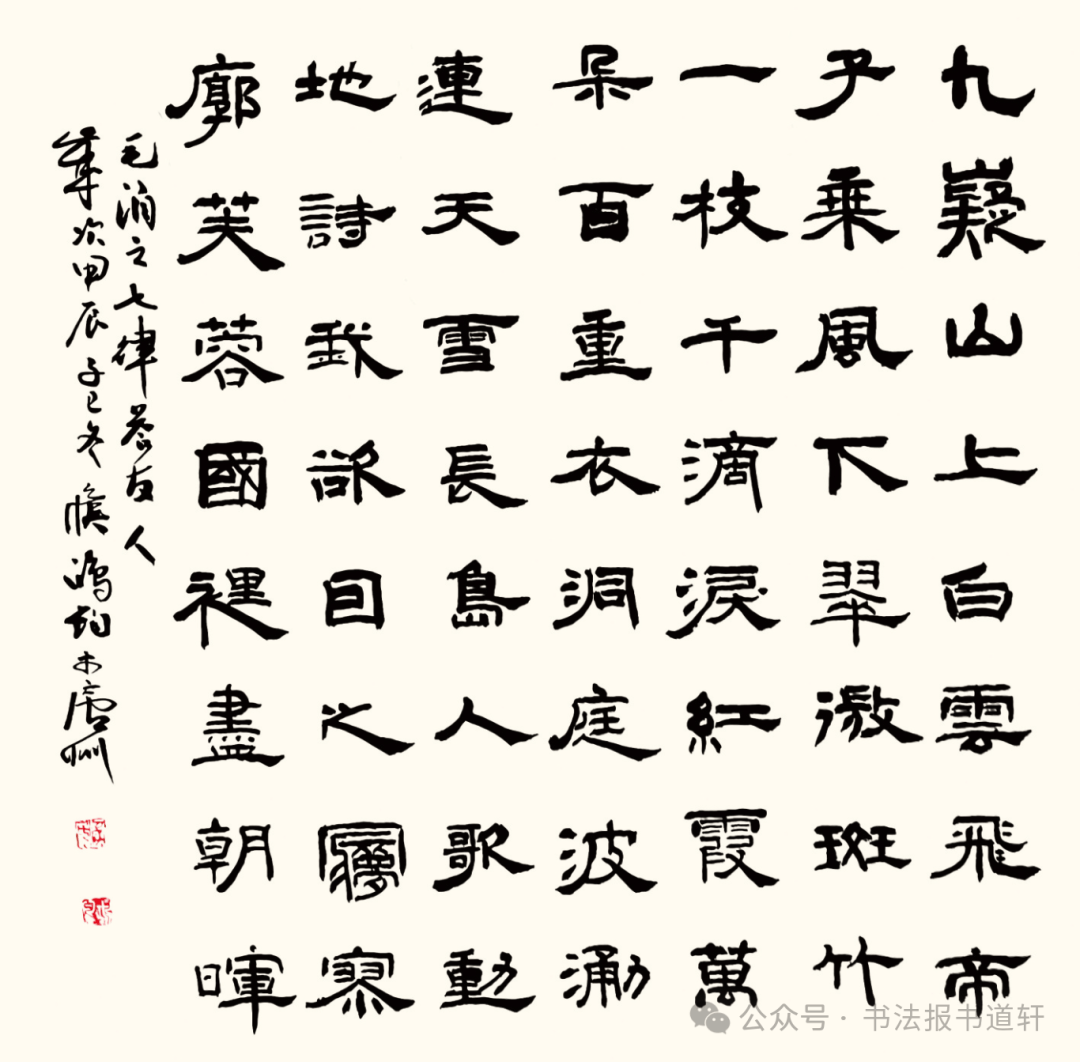 九嶷山上白雲飛帝
子乘風下翠微斑竹
一枝千滴淚紅霞萬
朵百重衣洞庭波涌
連天雪長島人歌動
地詩我欲因之夢寥
廓芙蓉國裡盡朝暉
毛潤之七律答友人
歲次甲辰
公众号 · 书法报书道轩